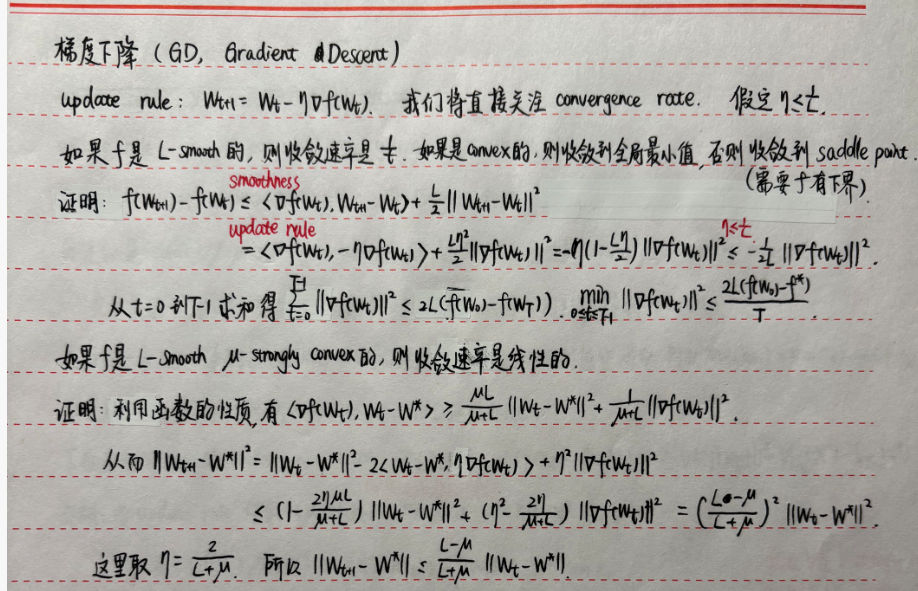 梯度下降 (GD, Gradient Descent)
update rule: W_{t+1} = W_t - η∇f(W_t). 我们将直接关注 convergence rate. 假定 η ≤ 1/L.
如果 f 是 L-smooth 的, 则收敛速率是 1/t. 如果是 convex 的, 则收敛到全局最小值, 否则收敛到 saddle point.
(需要 f 有下界)
smoothness
证明: f(W_{t+1}) - f(W_t) ≤ <∇f(W_t), W_{t+1} - W_t> + L/2 ||W_{t+1} - W_t||²
update rule η ≤ 1/L
= <∇f(W_t), -η∇f(W_t)> + Lη²/2 ||∇f(W_t)||² = -η(1 - Lη/2) ||∇f(W_t)||² ≤ -1/2L ||∇f(W_t)||².
从 t=0 到 T-1 求和得 ∑_{t=0}^{T-1} ||∇f(W_t)||² ≤ 2L(f(W_0) - f(W_T)). min_{0≤t≤T-1} ||∇f(W_t)||² ≤ 2L(f(W_0) - f*)/T.
如果 f 是 L-smooth μ-strongly convex 的, 则收敛速率是线性的.
证明: 利用函数的性质, 有 <∇f(W_t), W_t - W*> ≥ μL/(μ+L) ||W_t - W*||² + 1/(μ+L) ||∇f(W_t)||².
从而 ||W_{t+1} - W*||² = ||W_t - W*||² - 2<W_t - W*, η∇f(W_t)> + η² ||∇f(W_t)||²
≤ (1 - 2ημL/(μ+L)) ||W_t - W*||² + (η² - 2η/(μ+L)) ||∇f(W_t)||² = ((L-μ)/(L+μ))² ||W_t - W*||².
这里取 η = 2/(L+μ). 所以 ||W_{t+1} - W*|| ≤ (L-μ)/(L+μ) ||W_t - W*||.